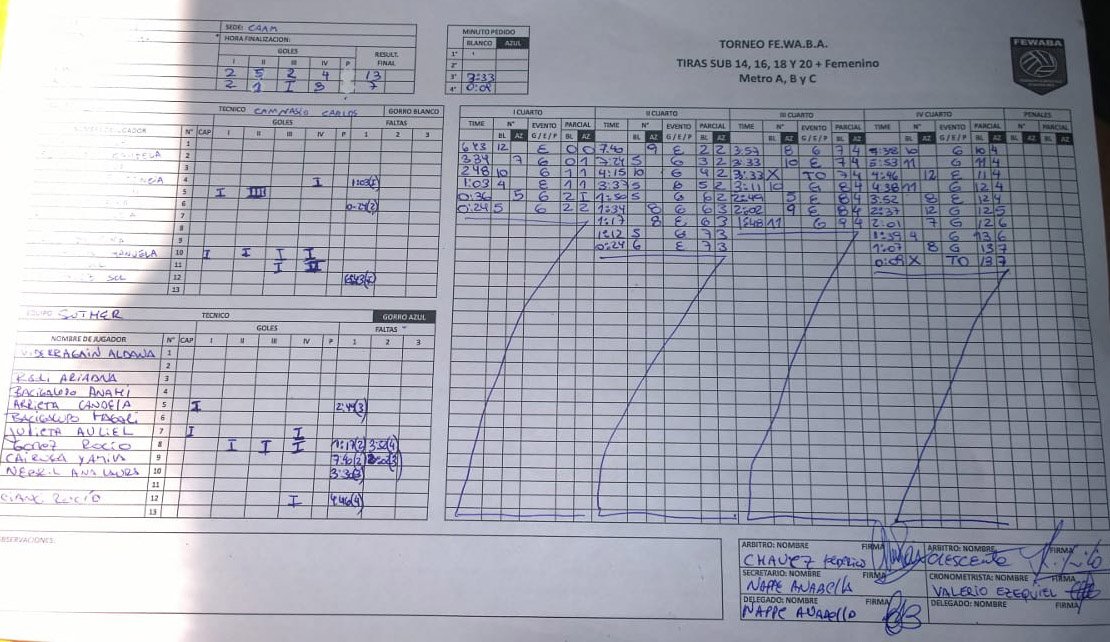 SEDE: CAAM
HORA FINALIZACION:
GOLES
I II III IV P RESULT. FINAL
2 5 2 4 13
2 1 I 3 7
MINUTO PEDIDO
BLANCO AZUL
1°
2°
3° 3:33
4° 0:08
TORNEO FE.WA.BA.
TIRAS SUB 14, 16, 18 Y 20 + Femenino
Metro A, B y C
FEWABA
TECNICO CARLOS GORRO BLANCO
GOLES FALTAS
N° CAP I II III IV P 1 2 3
1
2
3
4 I 1:03(I)
5 I IIII
6 0:24(2)
7
8
9
10 I I I I
11 I II
12
13
EQUIPO TECNICO GORRO AZUL
GOLES FALTAS
NOMBRE DE JUGADOR N° CAP I II III IV P 1 2 3
ALDANA 1
2
ARIADNA 3
BACIGALUPO ANAHI 4
ARRIETA CANDELA 5 I 2:49(3)
BACIGALUPO 6
JULIETA 7 I I
GOMEZ ROCIO 8 I I I 1:17(2) 3:52(4)
9 7:40(2)
10 3:33(3)
11
ROCIO 12 I 4:46(4)
13
OBSERVACIONES:
I CUARTO II CUARTO III CUARTO IV CUARTO PENALES
TIME N° EVENTO PARCIAL TIME N° EVENTO PARCIAL TIME N° EVENTO PARCIAL TIME N° EVENTO PARCIAL N° PARCIAL
BL AZ G/E/P BL AZ BL AZ G/E/P BL AZ BL AZ G/E/P BL AZ BL AZ G/E/P BL AZ BL AZ BL AZ
6:43 12 E 0 0 7:40 9 E 2 2 3:57 8 G 7 4 5:38 10 G 10 4
3:34 7 G 0 1 7:24 5 G 3 2 3:33 10 E 7 4 5:53 11 G 11 4
2:48 10 G 1 1 4:15 10 G 4 2 3:33 X TO 7 4 4:46 12 E 11 4
1:03 4 E 1 1 3:37 5 G 5 2 3:11 10 G 8 4 4:38 11 G 12 4
0:36 5 G 2 I 1:50 5 G 6 2 2:49 5 E 8 4 3:52 8 E 12 4
0:24 5 G 2 2 1:34 8 G 6 3 2:02 9 E 8 4 2:37 12 G 12 5
1:17 8 E 6 3 1:48 11 G 9 4 2:01 7 G 12 6
1:12 5 G 7 3 1:39 4 G 13 6
0:24 6 E 7 3 1:07 8 G 13 7
0:08 X TO 13 7
ARBITRO: NOMBRE FIRMA ARBITRO: NOMBRE FIRMA
CHAVEZ FEDERICO
SECRETARIO: NOMBRE FIRMA CRONOMETRISTA: NOMBRE FIRMA
NAPPE ANABELLA VALERIO EZEQUIEL
DELEGADO: NOMBRE FIRMA DELEGADO: NOMBRE FIRMA
NAPPE ANABELLA